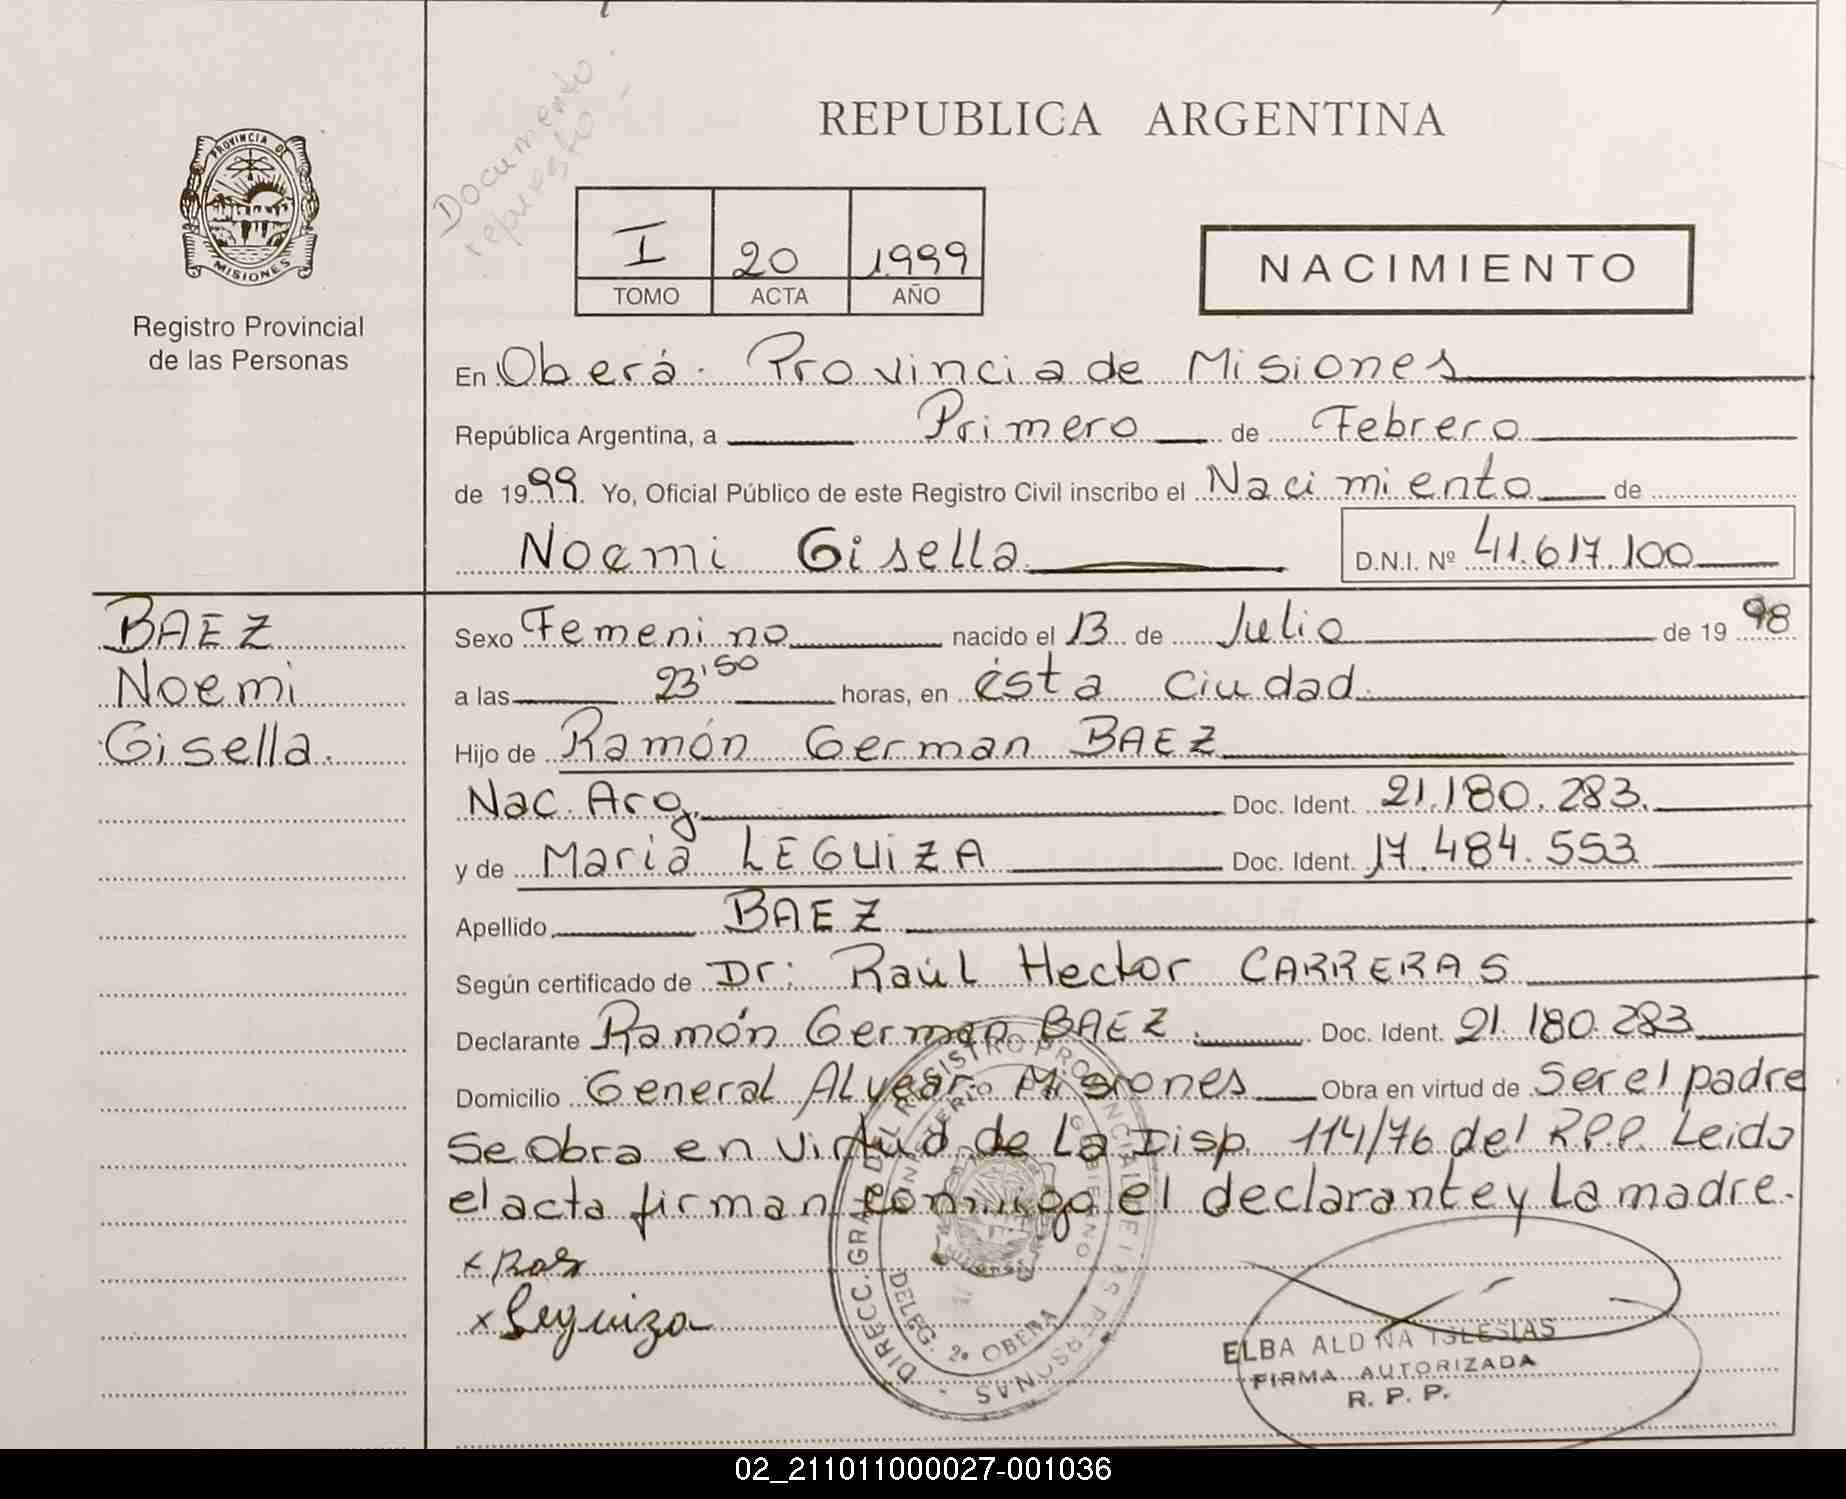 Documento
repuesto
REPUBLICA ARGENTINA
PROVINCIA DE
MISIONES
Registro Provincial
de las Personas
I 20 1999
TOMO ACTA AÑO
NACIMIENTO
En Oberá. Provincia de Misiones
República Argentina, a Primero de Febrero
de 1999. Yo, Oficial Público de este Registro Civil inscribo el Nacimiento de
Noemi Gisella D.N.I. Nº 41.617.100
BAEZ
Noemi
Gisella.
Sexo Femenino nacido el 13 de Julio de 19 98
a las 23'50 horas, en ésta Ciudad
Hijo de Ramón German BAEZ
Nac. Arg. Doc. Ident. 21.180.283.
y de Maria LEGUiZA Doc. Ident. 17.484.553
Apellido BAEZ
Según certificado de Dr: Raúl Hector CARRERAS
Declarante Ramón German BAEZ. Doc. Ident. 21.180.283
Domicilio General Alvear. Misiones Obra en virtud de Ser el padre
Se Obra en virtud de La Disp. 114/76 del R.P.P. Leido
el acta firman conmigo el declarante y La madre.
x
x Leguiza
DIRECC. GRAL. DEL REGISTRO PROVINCIAL DE LAS PERSONAS
MINISTERIO DE GOBIERNO
DELEG. 2º OBERA
ELBA ALDINA IGLESIAS
FIRMA AUTORIZADA
R. P. P.
02_211011000027-001036